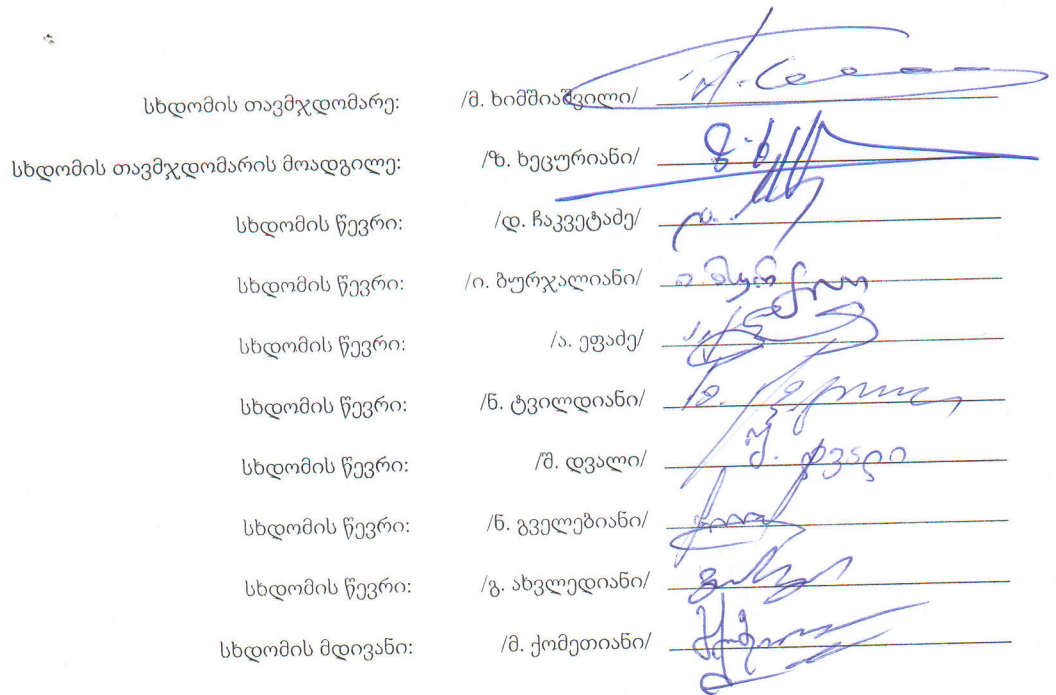 სხდომის თავმჯდომარე: /მ. ხიმშიაშვილი/
სხდომის თავმჯდომარის მოადგილე: /ზ. ხეცურიანი/
სხდომის წევრი: /დ. ჩაკვეტაძე/
სხდომის წევრი: /ი. ბურჯალიანი/
სხდომის წევრი: /ა. ეფაძე/
სხდომის წევრი: /ნ. ტვილდიანი/
სხდომის წევრი: /შ. დვალი/ შ. დვალი
სხდომის წევრი: /ნ. გველებიანი/
სხდომის წევრი: /გ. ახვლედიანი/
სხდომის მდივანი: /მ. ქომეთიანი/